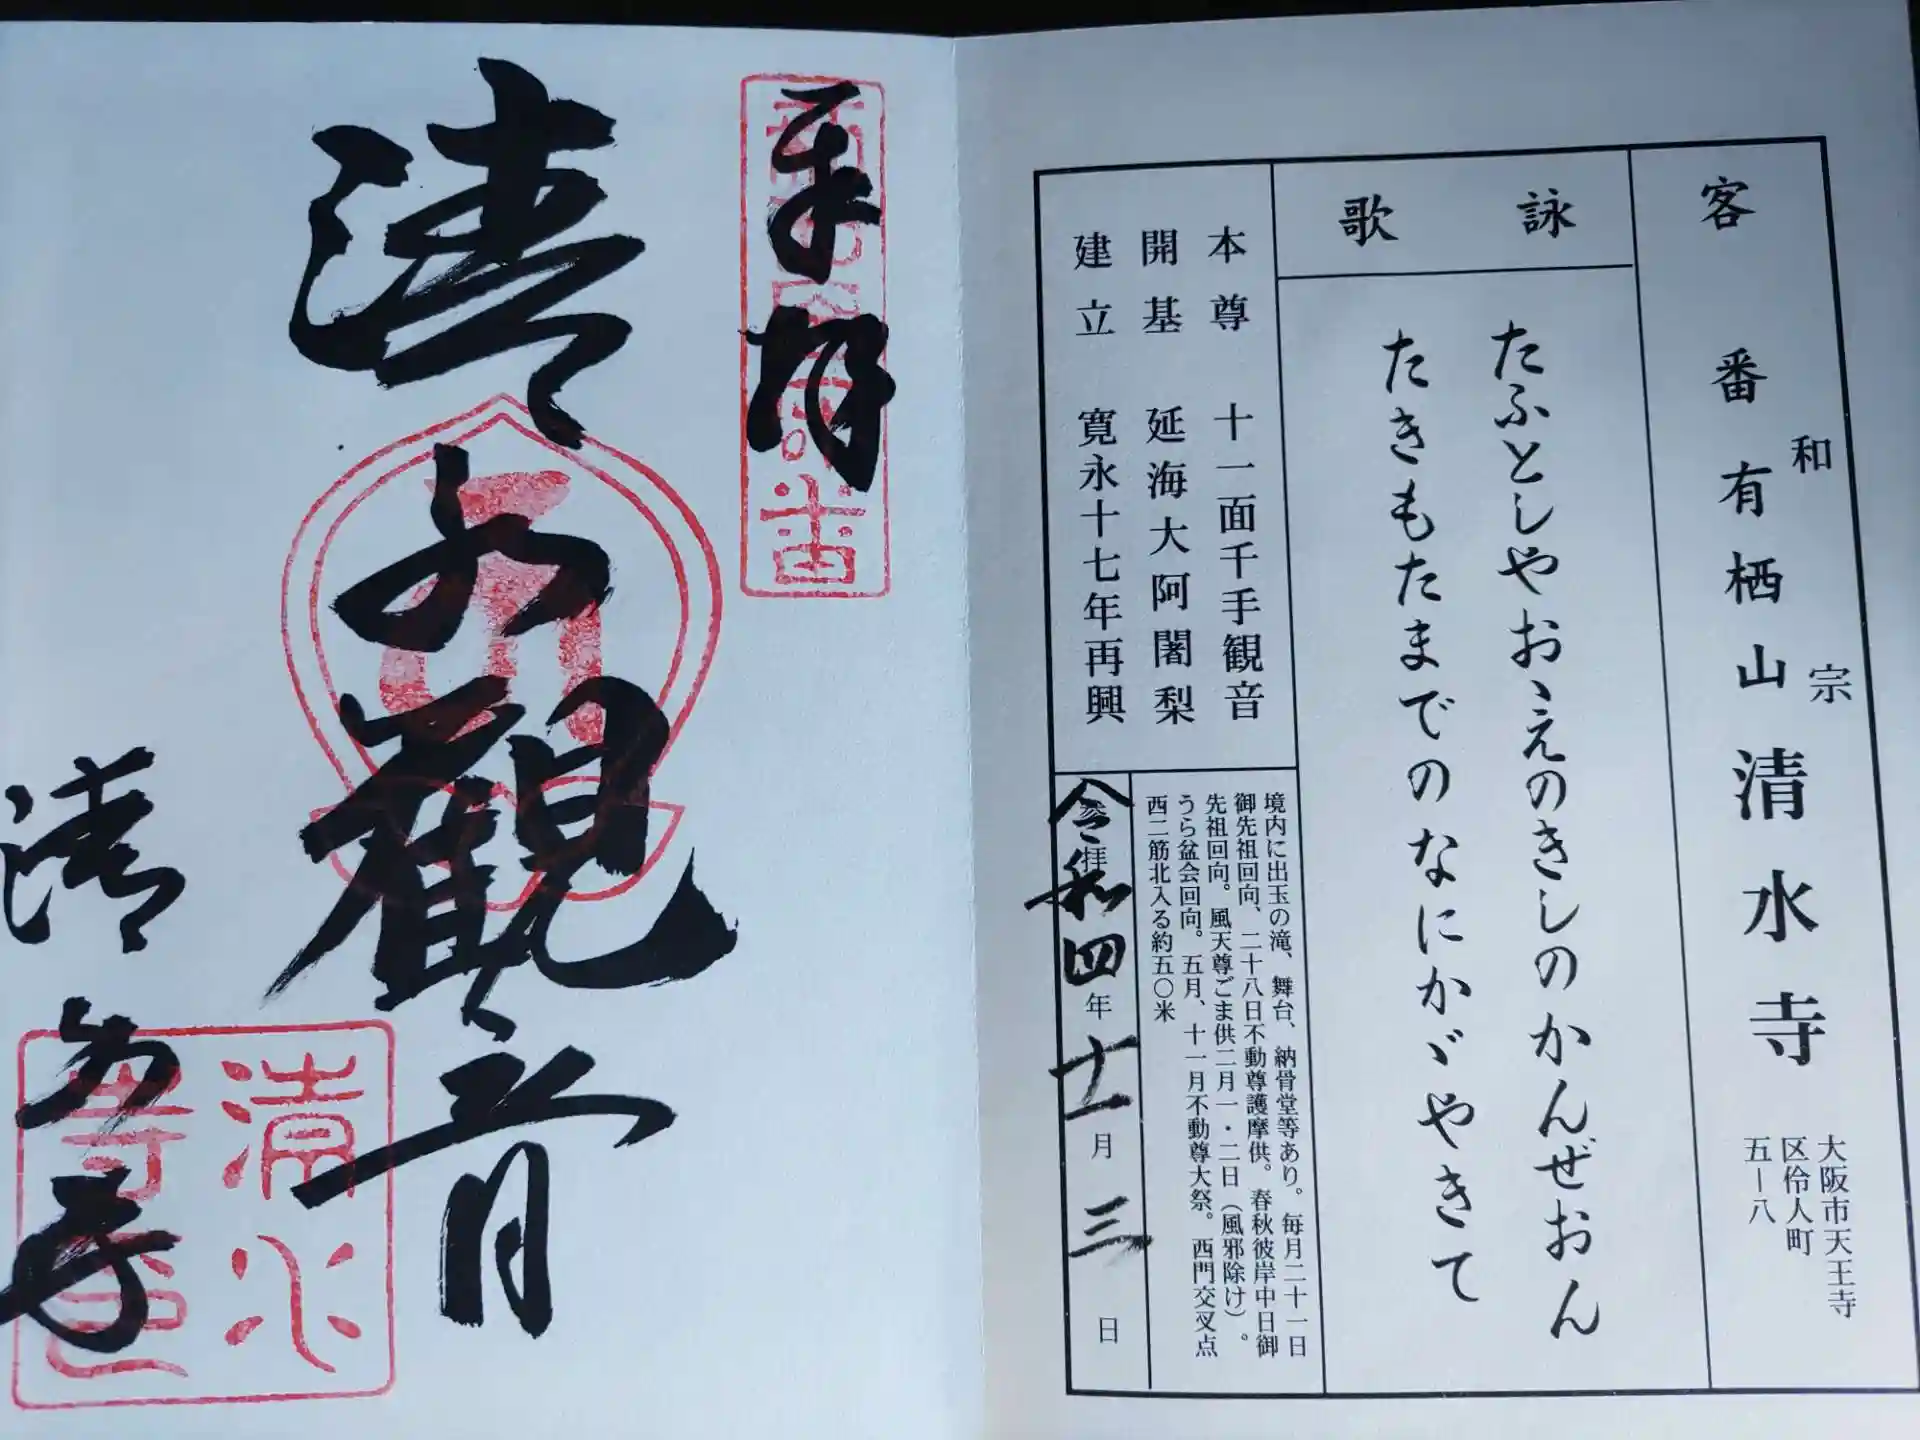 客番
和宗
有栖山清水寺
大阪市天王寺
区伶人町
五ー八
詠歌
たふとしやおゝえのきしのかんぜおん
たきもたまでのなにかゞやきて
本尊 十一面千手観音
開基 延海大阿闍梨
建立 寛永十七年再興
境内に出玉の滝、舞台、納骨堂等あり。毎月二十一日
御先祖回向、二十八日不動尊護摩供。春秋彼岸中日御
先祖回向。風天尊ごま供二月一・二日(風邪除け)。
うら盆会回向。五月、十一月不動尊大祭。西門交叉点
西二筋北入る約五〇米
参拝
令和四年十一月三日
奉拝
清水観音
清水寺
清水